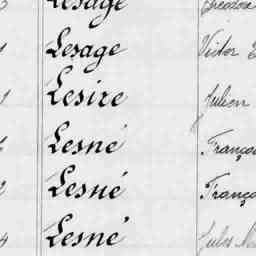 Lesage Théodore
Lesage Victor
1 Lesire Julien
Lesné Franço
2 Lesné Franço
4 Lesné Jules